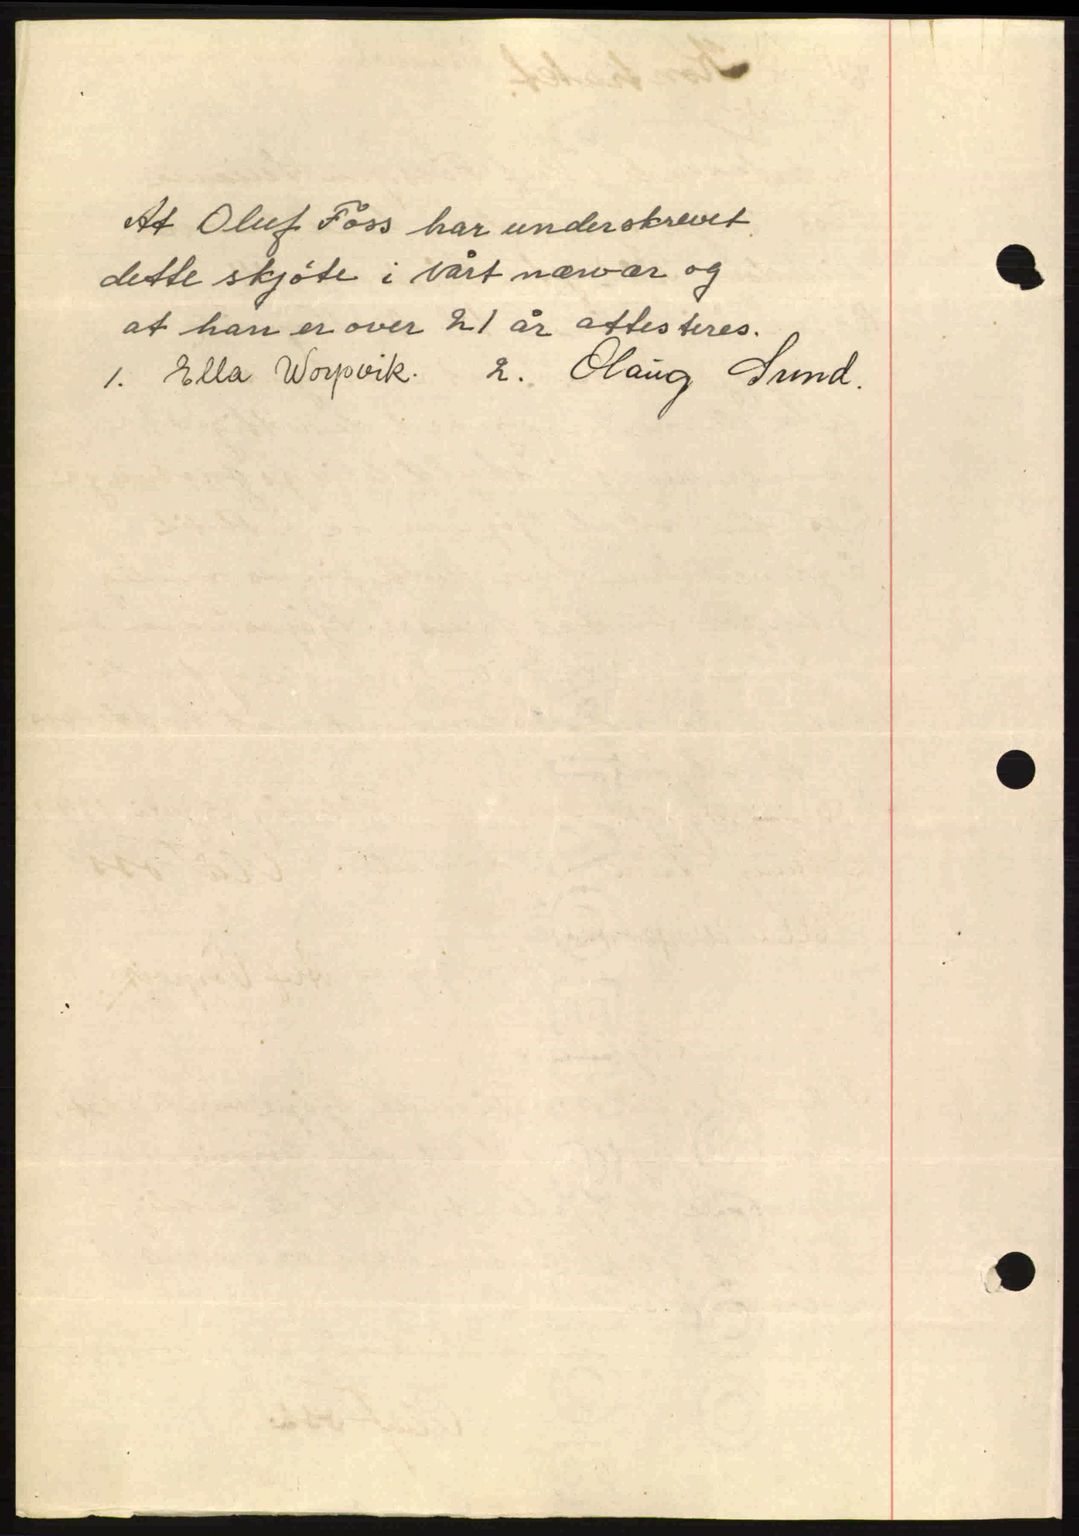 At Oluf Föss har underskrevet
dette skjöte i vårt nærvær og
at han er over 21 år attesteres.
1. Ella Worpvik. 2. Olaug Sund.